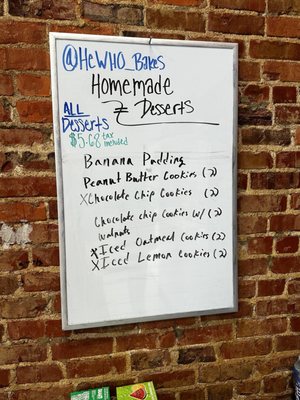 @HeWHO_Bakes
Homemade
Desserts
ALL
Desserts
$5.68 tax
included
Banana Pudding
Peanut Butter Cookies (2)
X Chocolate Chip Cookies (2)
Chocolate chip Cookies w/ (2)
walnuts
X Iced Oatmeal Cookies (2)
X Iced Lemon Cookies (2)